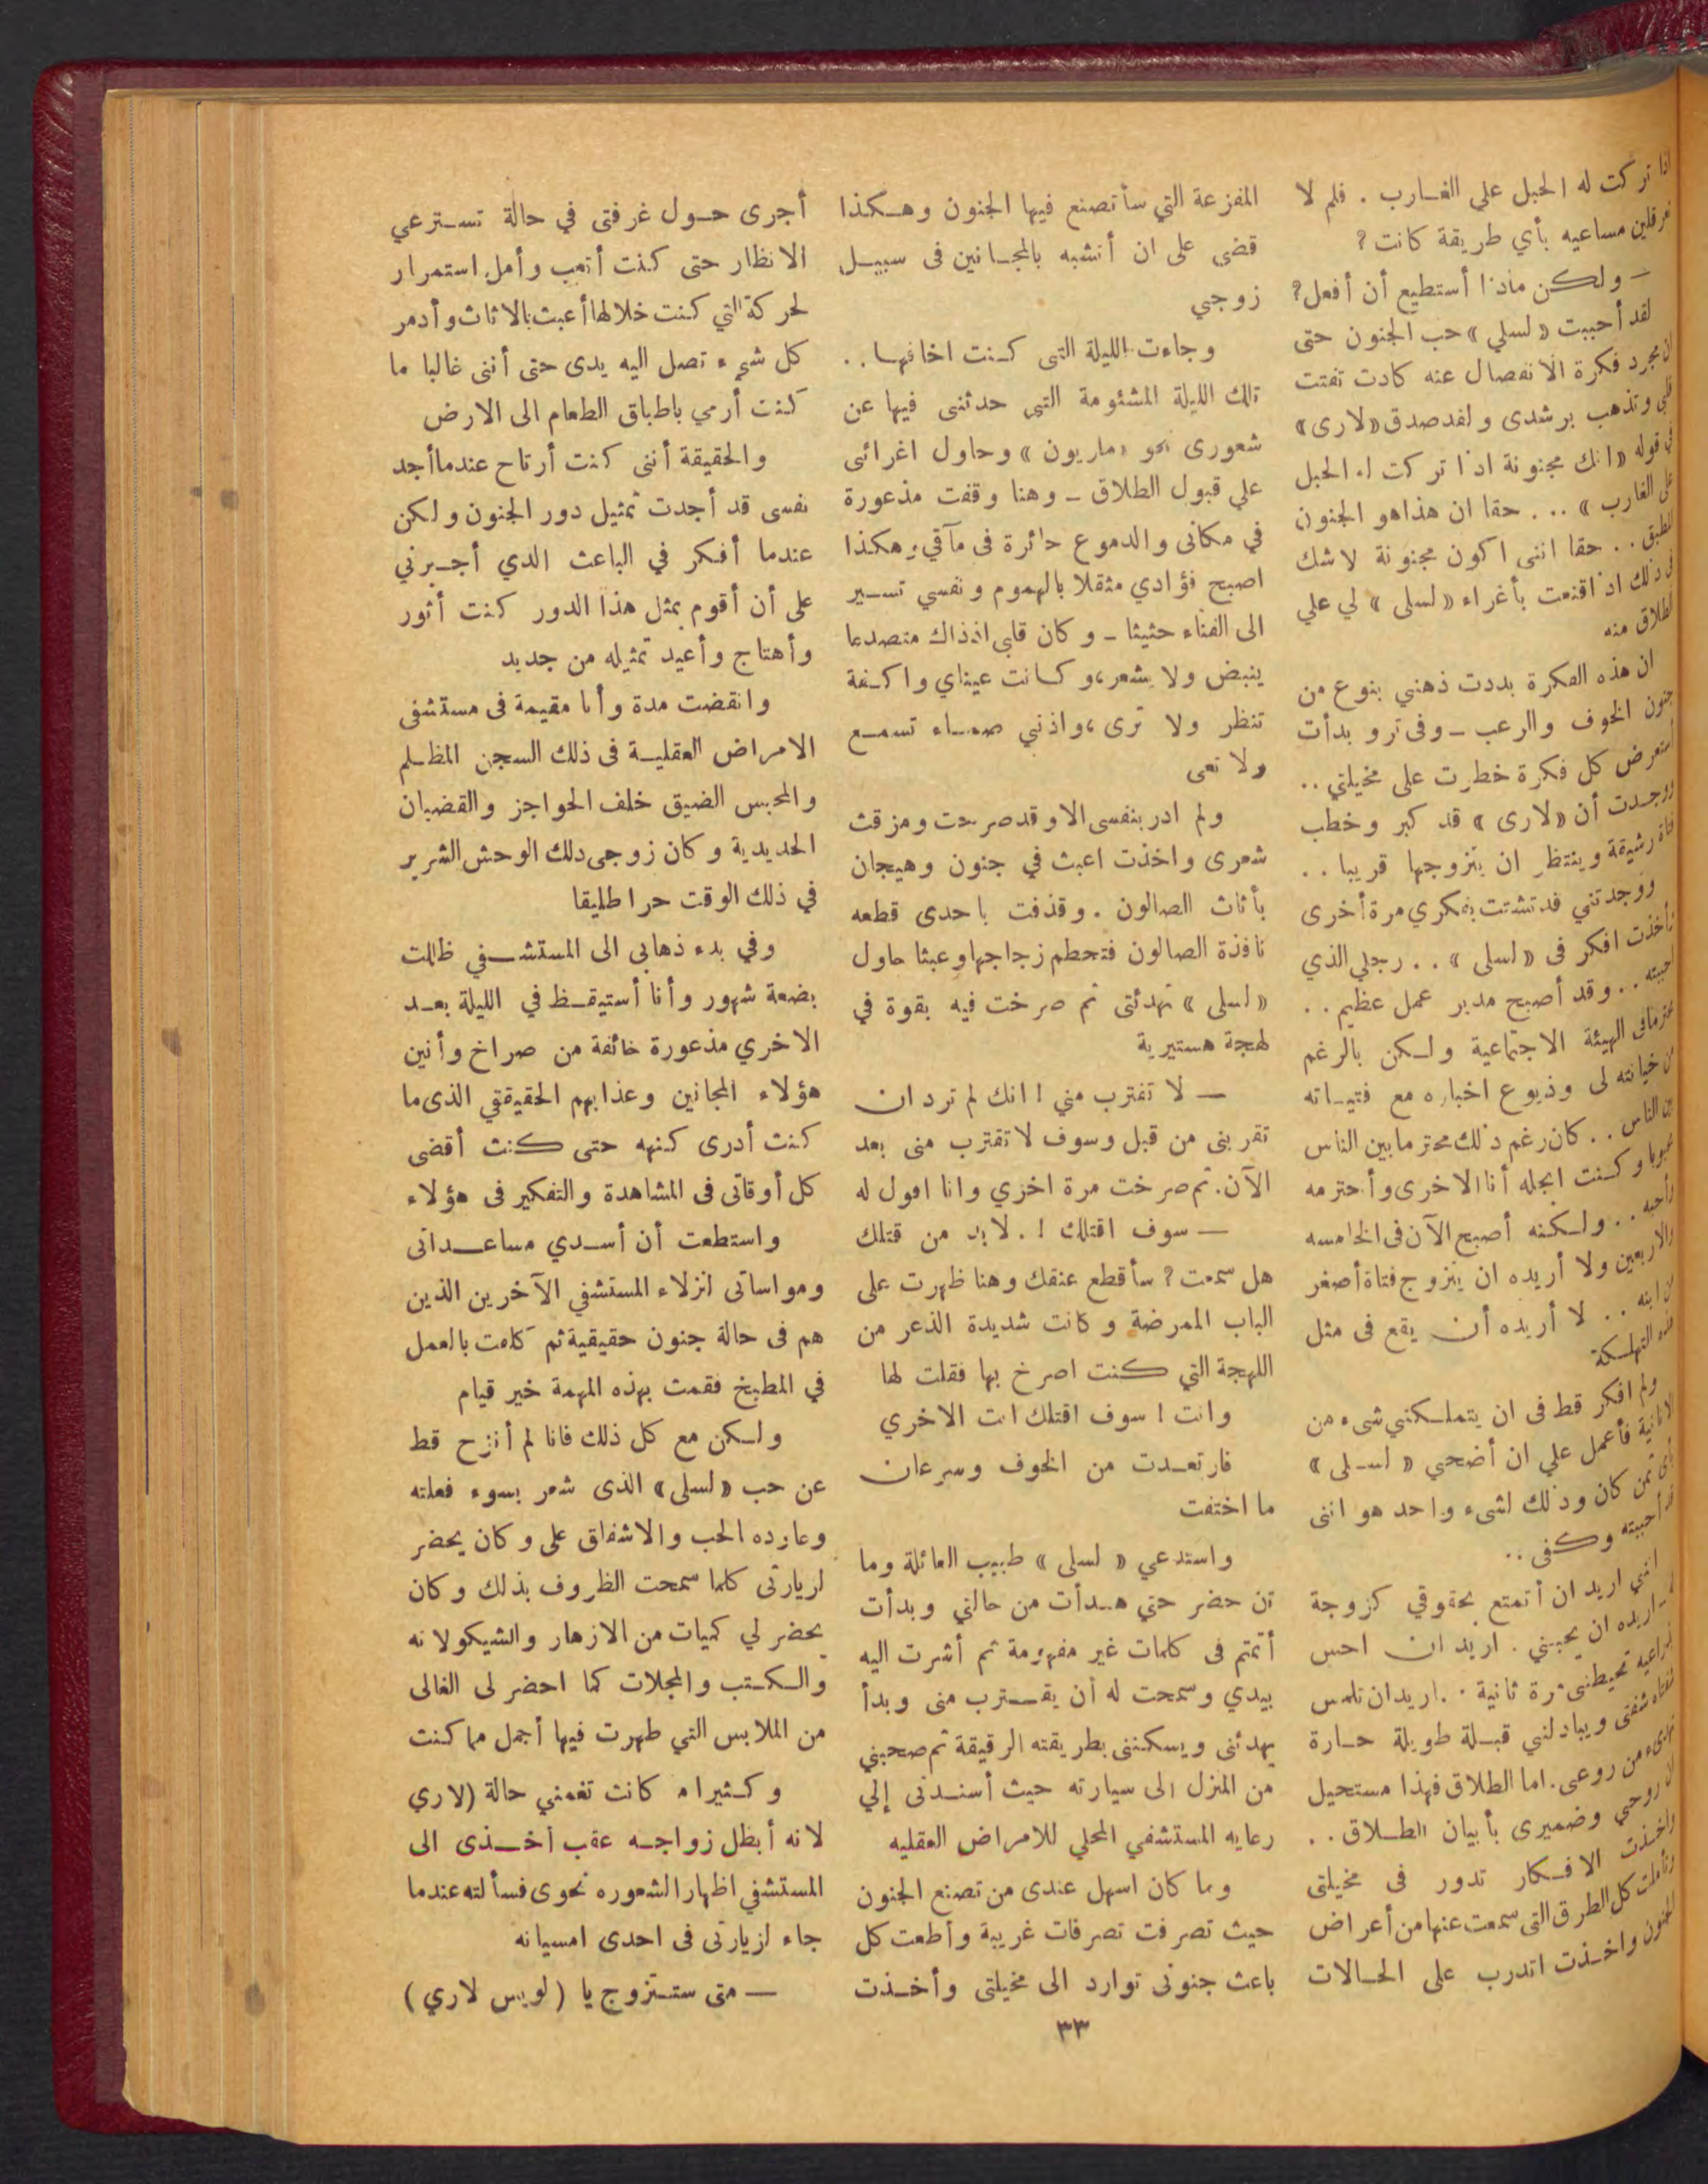 اذا تركت له الحبل علي الغارب . فلم لا
تعرقلين مساعيه بأي طريقة كانت ؟
— ولكن ماذا أستطيع أن أفعل؟
لقد أحببت «لسلي» حب الجنون حتى
ان مجرد فكرة الانفصال عنه كادت تفتت
قلبي وتذهب برشدى ولقد صدق «لارى»
في قوله «انك مجنونة اذا تركت له الحبل
على الغارب» ... حقا ان هذا هو الجنون
المطبق .. حقا اننى اكون مجنونة لاشك
فى ذلك اذا اقتنعت بأغراء «لسلى» لي علي
الطلاق منه
ان هذه الفكرة بددت ذهني بنوع من
جنون الخوف والرعب - وفى ترو بدأت
أستعرض كل فكرة خطرت على مخيلتي ..
ووجدت أن «لارى» قد كبر وخطب
فتاة رشيقة وينتظر ان يتزوجها قريبا ..
ووجدتني قد تشتت بفكري مرة أخرى
فأخذت افكر فى «لسلى» .. رجلي الذي
احببته .. وقد أصبح مدير عمل عظيم ..
محترما فى الهيئة الاجتماعية ولكن بالرغم
من خيانته لى وذيوع اخباره مع فتياته
بين الناس .. كان رغم ذلك محترما بين الناس
محبوبا وكنت ابجله أنا الاخرى وأحترمه
وأحبه .. ولكنه أصبح الآن فى الخامسه
والاربعين ولا أريده ان يتزوج فتاة أصغر
من ابنه .. لا أريده أن يقع فى مثل
هذه التهلكة
ولم افكر قط فى ان يتملكني شىء من
الانانية فأعمل علي ان أضحي «لسلى»
بأى ثمن كان وذلك لشىء واحد هو اننى
قد أحببته وكفى ..
انني اريد ان أتمتع بحقوقي كزوجة
— اريده ان يحبني . اريد ان احس
بذراعيه تحيطنى مرة ثانية . اريد ان تلمس
شفتاه شفتى ويبادلني قبلة طويلة حارة
تهدىء من روعى . اما الطلاق فهذا مستحيل
لان روحي وضميرى يأبيان الطلاق ..
واخذت الافكار تدور فى مخيلتى
وتأملت كل الطرق التى سمعت عنها من أعراض
الجنون واخذت اتدرب على الحالات
المفزعة التي سأتصنع فيها الجنون وهكذا
قضى على ان أتشبه بالمجانين فى سبيل
زوجي
وجاءت الليلة التى كنت اخافها ..
تلك الليلة المشئومة التى حدثنى فيها عن
شعورى نحو «ماريون» وحاول اغرائى
علي قبول الطلاق - وهنا وقفت مذعورة
في مكانى والدموع حائرة فى مآقي وهكذا
اصبح فؤادي مثقلا بالهموم ونفسي تسير
الى الفناء حثيثا - وكان قلبى اذذاك متصدعا
ينبض ولا يشعر، وكانت عيناي واكفة
تنظر ولا ترى، واذني صماء تسمع
ولا تعى
ولم ادر بنفسى الا وقد صرخت ومزقت
شعرى واخذت اعبث في جنون وهيجان
بأثاث الصالون . وقذفت باحدى قطعه
نافذة الصالون فتحطم زجاجها وعبثا حاول
«لسلى» تهدئتى ثم صرخت فيه بقوة في
لهجة هستيرية
— لا تقترب مني ! انك لم ترد ان
تقربنى من قبل وسوف لا تقترب منى بعد
الآن. ثم صرخت مرة اخزي وانا اقول له
— سوف اقتلك ! . لابد من قتلك
هل سمعت ؟ سأقطع عنقك وهنا ظهرت على
الباب الممرضة وكانت شديدة الذعر من
اللهجة التي كنت اصرخ بها فقلت لها
وانت ! سوف اقتلك انت الاخري
فارتعدت من الخوف وسرعان
ما اختفت
واستدعي «لسلى» طبيب العائلة وما
ان حضر حتي هدأت من حالتي وبدأت
أتمتم فى كلمات غير مفهومة ثم أشرت اليه
بيدي وسمحت له أن يقترب منى وبدأ
يهدئنى ويسكننى بطريقته الرقيقة ثم صحبني
من المنزل الى سيارته حيث أسندنى إلي
رعايه المستشفي المحلي للامراض العقليه
وما كان اسهل عندى من تصنع الجنون
حيث تصرفت تصرفات غريبة وأطعت كل
باعث جنونى توارد الى مخيلتى وأخذت
أجرى حول غرفتى في حالة تسترعي
الانظار حتى كنت أتعب وأمل استمرار
لحركة التي كنت خلالها أعبث بالاثاث وأدمر
كل شيء تصل اليه يدى حتى أننى غالبا ما
كنت أرمي باطباق الطعام الى الارض
والحقيقة أننى كنت أرتاح عندما أجد
نفسى قد أجدت تمثيل دور الجنون ولكن
عندما أفكر في الباعث الذي أجبرني
على أن أقوم بمثل هذا الدور كنت أثور
وأهتاج وأعيد تمثيله من جديد
وانقضت مدة وأنا مقيمة فى مستشفى
الامراض العقلية فى ذلك السجن المظلم
والمحبس الضيق خلف الحواجز والقضبان
الحديدية وكان زوجى ذلك الوحش الشرير
في ذلك الوقت حرا طليقا
وفي بدء ذهابى الى المستشفي ظللت
بضعة شهور وأنا أستيقظ في الليلة بعد
الاخري مذعورة خائفة من صراخ وأنين
هؤلاء المجانين وعذابهم الحقيقتي الذى ما
كنت أدرى كنهه حتى كنت أقضى
كل أوقاتى فى المشاهدة والتفكير فى هؤلاء
واستطعت أن أسدي مساعداتى
ومواساتى لنزلاء المستشفي الآخرين الذين
هم فى حالة جنون حقيقية ثم كلفت بالعمل
في المطبخ فقمت بهذه المهمة خير قيام
ولكن مع كل ذلك فانا لم أنزح قط
عن حب «لسلى» الذى شعر بسوء فعلته
وعاوده الحب والاشفاق على وكان يحضر
لزيارتى كلما سمحت الظروف بذلك وكان
يحضر لي كميات من الازهار والشيكولاته
والكتب والمجلات كما احضر لى الغالى
من الملابس التي ظهرت فيها أجمل مما كنت
وكثيرا ما كانت تغمني حالة (لاري
لانه أبطل زواجه عقب أخذى الى
المستشفي اظهارا لشعوره نحوى فسألته عندما
جاء لزيارتى فى احدى امسياته
— متى ستتزوج يا (لويس لاري)
٣٣